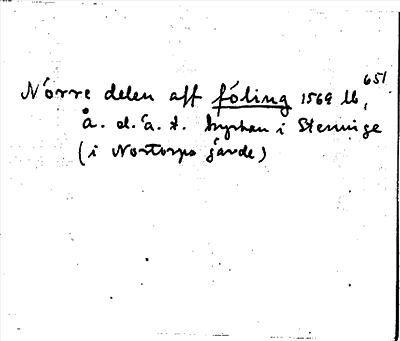 651
Nórre delen aff fóling 1569 lb,
å. d. a. t. kyrkan i Steninge
(i Nortorps gärde)